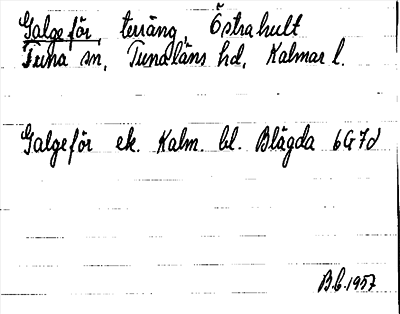 Galgeför, terräng, Östrahult
Tuna sn, Tunaläns hd, Kalmar l.
Galgeför ek. Kalm. bl. Blägda 6G7d
B.G. 1957